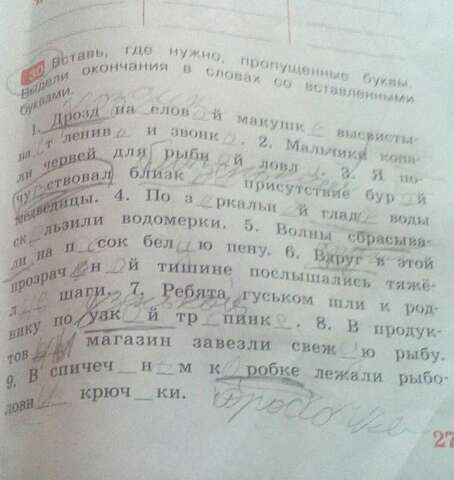 30 Вставь, где нужно, пропущенные буквы.
Выдели окончания в словах со вставленными
буквами.
1. Дрозд на елов о й макушк е высвисты-
ва е т ленив о и звонк о . 2. Мальчики копа-
ли червей для рыбн о й ловл и . 3. Я по-
чу в ствовал близк присутствие бур о й
медведицы. 4. По з е ркальн о й глад и воды
ск о льзили водомерки. 5. Волны сбрасыва-
ли на п е сок бел у ю пену. 6. Вдруг в этой
прозрач _ н о й тишине послышались тяжё-
л ы е шаги. 7. Ребята гуськом шли к род-
нику по узк о й тр о пинк е . 8. В продук-
тов ый магазин завезли свеж у ю рыбу.
9. В спичеч _ н о м к о робке лежали рыбо-
ловн ы _ крюч _ ки.
27